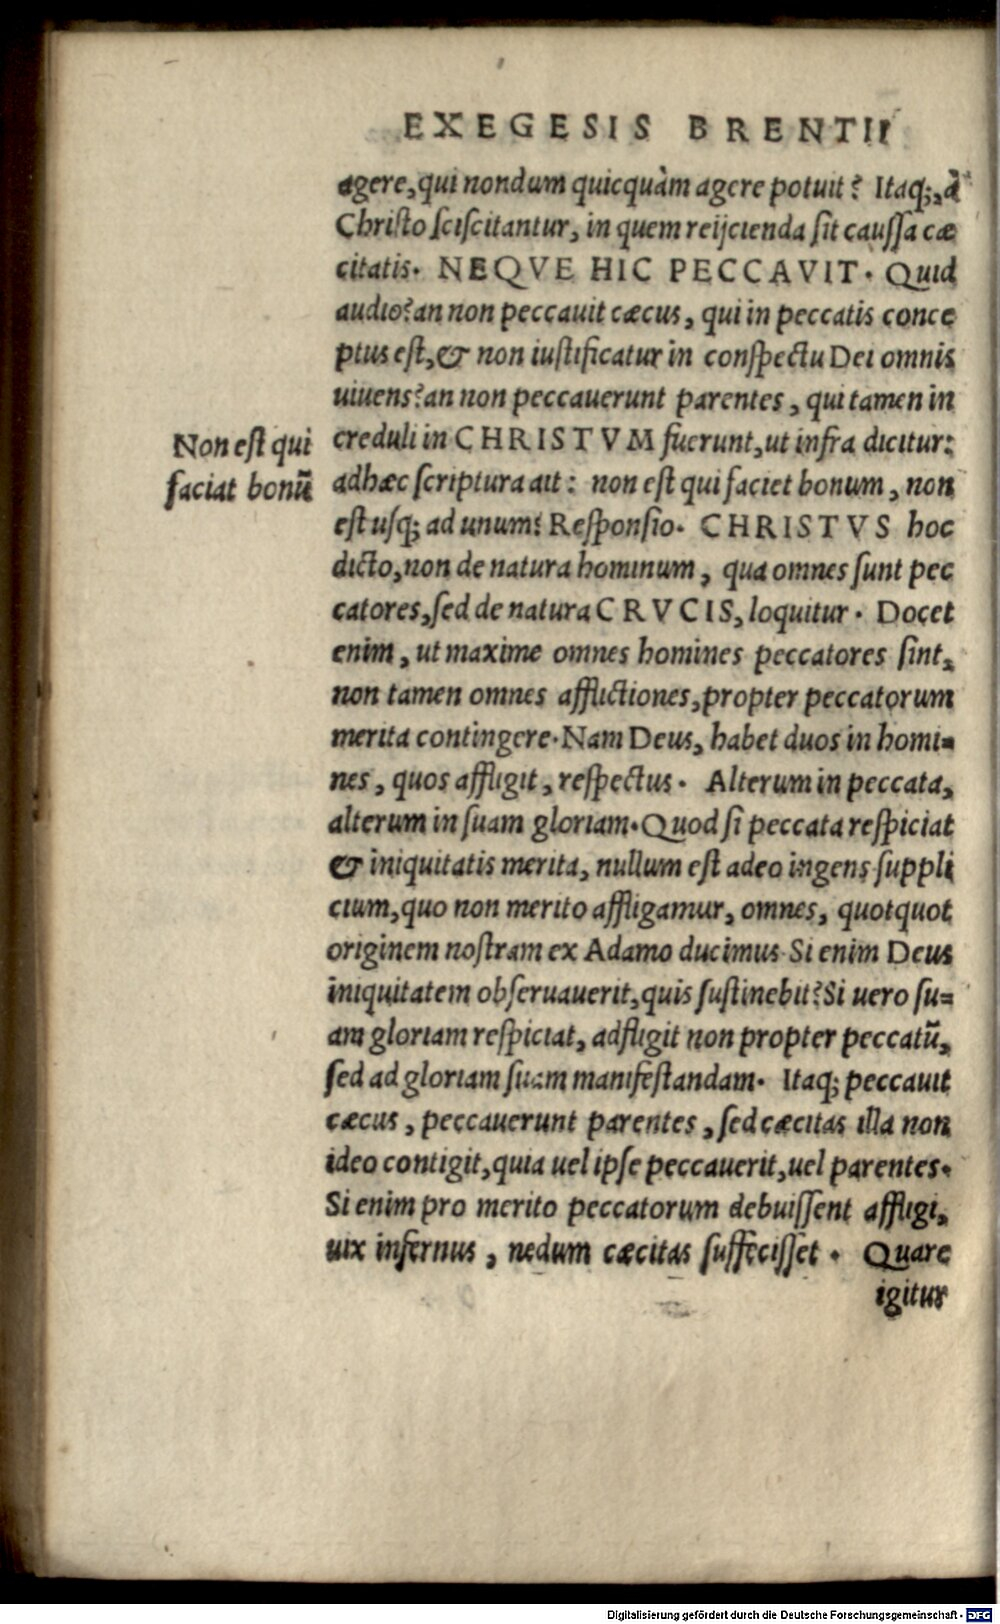 EXEGESIS BRENTII
agere, qui nondum quicquàm agere potuit? Itaq;, à
Christo sciscitantur, in quem reijcienda sit caussa cæ
citatis. NEQVE HIC PECCAVIT. Quid
audio? an non peccauit cæcus, qui in peccatis conce
ptus est, & non iustificatur in conspectu Dei omnis
uiuens? an non peccauerunt parentes, qui tamen in
creduli in CHRISTVM fuerunt, ut infra dicitur:
Non est qui
faciat bonū
adhæc scriptura ait: non est qui faciet bonum, non
est usq; ad unum? Responsio. CHRISTVS hoc
dicto, non de natura hominum, qua omnes sunt pec
catores, sed de natura CRVCIS, loquitur. Docet
enim, ut maxime omnes homines peccatores sint,
non tamen omnes afflictiones, propter peccatorum
merita contingere. Nam Deus, habet duos in homi=
nes, quos affligit, respectus. Alterum in peccata,
alterum in suam gloriam. Quod si peccata respiciat
& iniquitatis merita, nullum est adeo ingens suppli
cium, quo non merito affligamur, omnes, quotquot
originem nostram ex Adamo ducimus. Si enim Deus
iniquitatem obseruauerit, quis sustinebit? Si uero su=
am gloriam respiciat, adfligit non propter peccatū,
sed ad gloriam suam manifestandam. Itaq; peccauit
cæcus, peccauerunt parentes, sed cæcitas illa non
ideo contigit, quia uel ipse peccauerit, uel parentes.
Si enim pro merito peccatorum debuissent affligi,
uix infernus, nedum cæcitas suffecisset. Quare
igitur
Digitalisierung gefördert durch die Deutsche Forschungsgemeinschaft - DFG